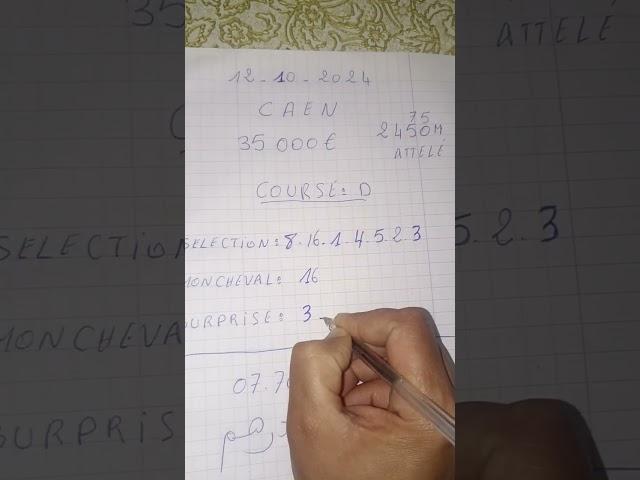 12-10-2024
CAEN
35 000€
75
2450M
ATTELÉ
COURSE: D
SELECTION: 8.16.1.4.5.2.3
MON CHEVAL: 16
SURPRISE: 3
07.70